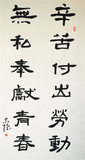 辛苦付出勞動
無私奉獻青春